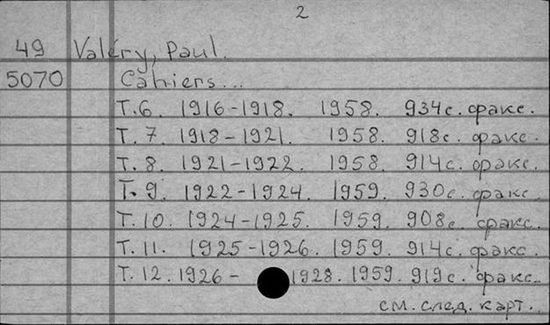 2
49 Valéry, Paul.
5070 Cahiers...
Т.6. 1916-1918. 1958. 934с. факс.
Т.7. 1918-1921. 1958. 918с. факс.
Т.8. 1921-1922. 1958. 914с. факс.
Т.9. 1922-1924. 1959. 930с. факс.
Т.10. 1924-1925. 1959. 908с. факс.
Т.11. 1925-1926. 1959. 914с. факс.
Т.12. 1926- 1928. 1959. 919с. факс.
см. след. карт.